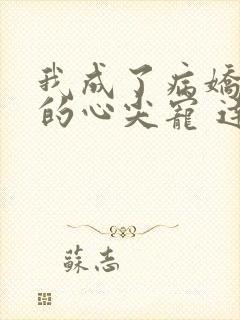 我成了病嬌
的心尖寵
蘇志